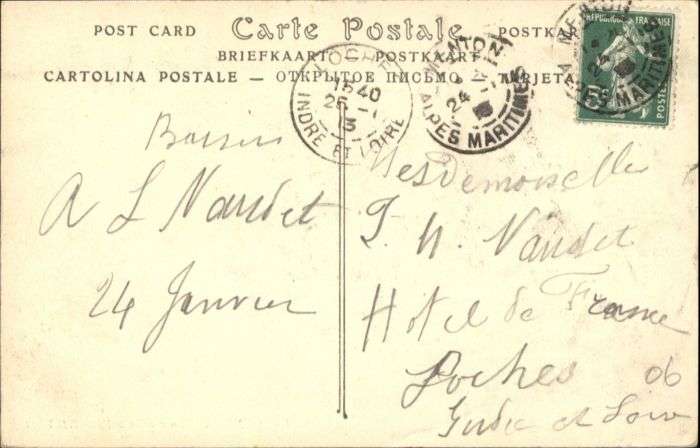 POST CARD — Carte Postale — POSTKARTE
BRIEFKAART — POSTKAART
CARTOLINA POSTALE — ОТКРЫТОЕ ПИСЬМО — TARJETA
LOCHES
15 40
25 - 1
13
INDRE ET LOIRE
MENTON
24 - 1
ALPES MARITIMES
RÉPUBLIQUE FRANÇAISE
5c
POSTES
MENTON
24
ALPES MARITIMES
A L Naudet
24 Janvier
Mesdemoiselles
N. Naudet
Hôtel de France
Loches
Indre et Loire